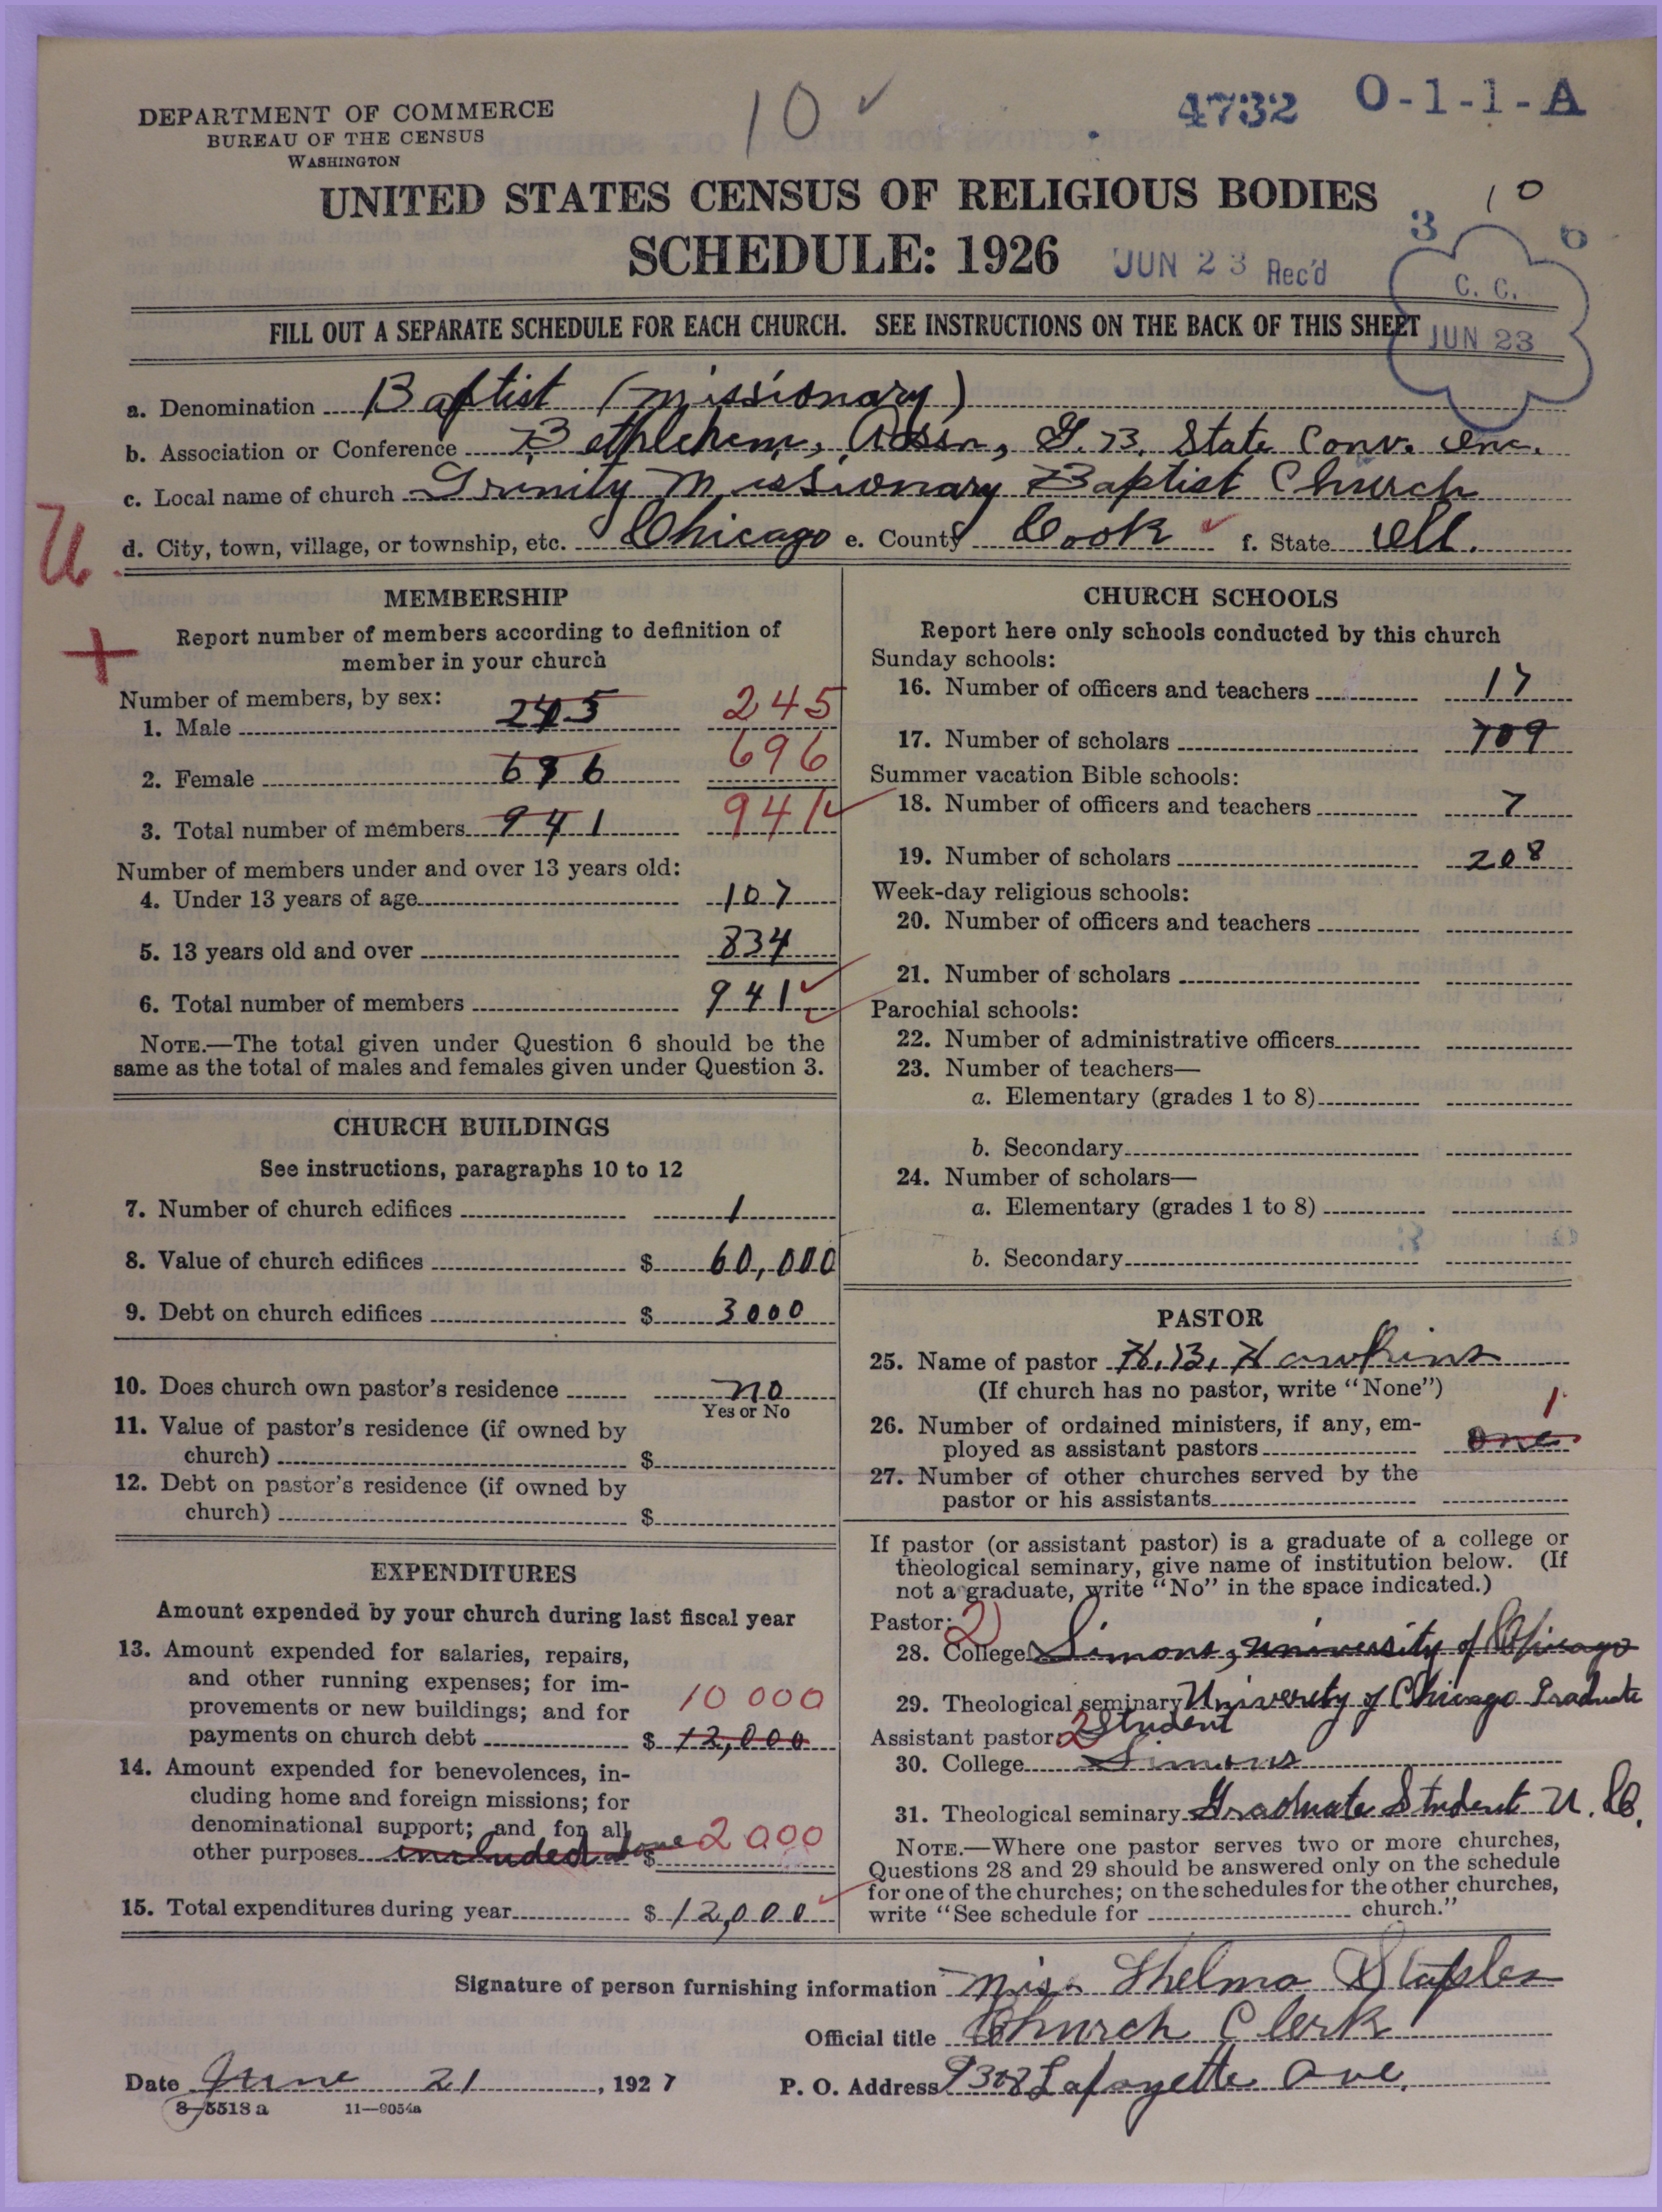 10 ✓
4732 O-1-1-A
DEPARTMENT OF COMMERCE
BUREAU OF THE CENSUS
WASHINGTON
UNITED STATES CENSUS OF RELIGIOUS BODIES
10
SCHEDULE: 1926
JUN 23 Rec'd
3 6
C. C.
JUN 23
FILL OUT A SEPARATE SCHEDULE FOR EACH CHURCH. SEE INSTRUCTIONS ON THE BACK OF THIS SHEET
a. Denomination Baptist (missionary)
b. Association or Conference Bethlehem, Assn, G. B. State Conv. Inc.
c. Local name of church Trinity Missionary Baptist Church
d. City, town, village, or township, etc. Chicago e. County Cook f. State Ill.
U
+
MEMBERSHIP
Report number of members according to definition of
member in your church
Number of members, by sex:
1. Male 245 245
2. Female 696 696
3. Total number of members 941 941
Number of members under and over 13 years old:
4. Under 13 years of age 107
5. 13 years old and over 834
6. Total number of members 941
NOTE.—The total given under Question 6 should be the
same as the total of males and females given under Question 3.
CHURCH BUILDINGS
See instructions, paragraphs 10 to 12
7. Number of church edifices 1
8. Value of church edifices $ 60,000
9. Debt on church edifices $ 3000
10. Does church own pastor's residence no
Yes or No
11. Value of pastor's residence (if owned by
church) $
12. Debt on pastor's residence (if owned by
church) $
EXPENDITURES
Amount expended by your church during last fiscal year
13. Amount expended for salaries, repairs,
and other running expenses; for im-
provements or new buildings; and for 10 000
payments on church debt $ 12,000
14. Amount expended for benevolences, in-
cluding home and foreign missions; for
denominational support; and for all 2000
other purposes included above $
15. Total expenditures during year $ 12,000
CHURCH SCHOOLS
Report here only schools conducted by this church
Sunday schools:
16. Number of officers and teachers 17
17. Number of scholars 709
Summer vacation Bible schools:
18. Number of officers and teachers 7
19. Number of scholars 208
Week-day religious schools:
20. Number of officers and teachers
21. Number of scholars
Parochial schools:
22. Number of administrative officers
23. Number of teachers—
a. Elementary (grades 1 to 8)
b. Secondary
24. Number of scholars—
a. Elementary (grades 1 to 8)
b. Secondary
PASTOR
25. Name of pastor H. B. Hawkins
(If church has no pastor, write "None")
26. Number of ordained ministers, if any, em- 1
ployed as assistant pastors one
27. Number of other churches served by the
pastor or his assistants
If pastor (or assistant pastor) is a graduate of a college or
theological seminary, give name of institution below. (If
not a graduate, write "No" in the space indicated.)
Pastor: 2
28. College Simons, university of Chicago
29. Theological seminary University of Chicago Graduate
Assistant pastor: 2 Student
30. College Simons
31. Theological seminary Graduate Student U. C.
NOTE.—Where one pastor serves two or more churches,
Questions 28 and 29 should be answered only on the schedule
for one of the churches; on the schedules for the other churches,
write "See schedule for church."
Signature of person furnishing information Miss Thelma Staples
Official title Church Clerk
Date June 21, 1927 P. O. Address 9308 Lafayette Ave.
8-5518 a 11—9054a